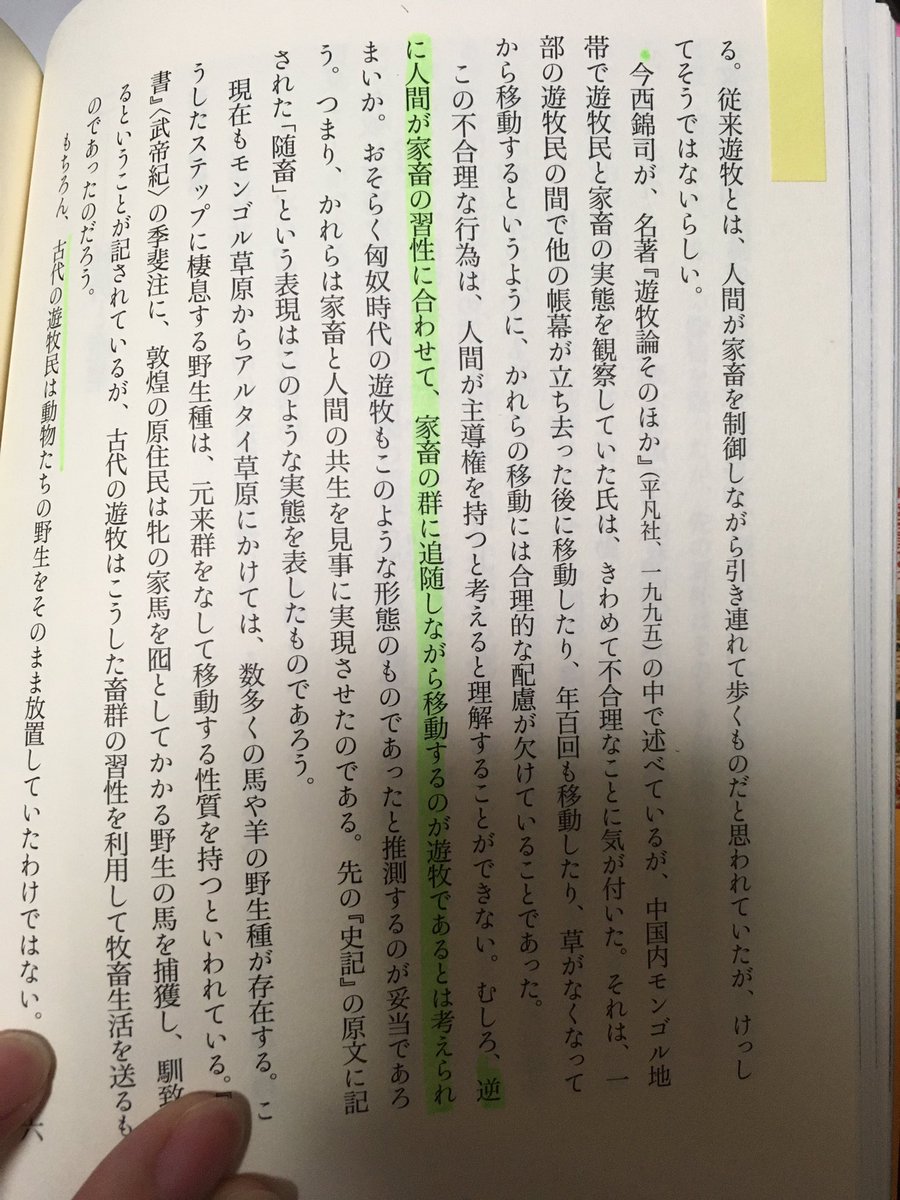 る。従来遊牧とは、人間が家畜を制御しながら引き連れて歩くものだと思われていたが、けっし
てそうではないらしい。
今西錦司が、名著『遊牧論そのほか』(平凡社、一九九五)の中で述べているが、中国内モンゴル地
帯で遊牧民と家畜の実態を観察していた氏は、きわめて不合理なことに気が付いた。それは、一
部の遊牧民の間で他の帳幕が立ち去った後に移動したり、年百回も移動したり、草がなくなって
から移動するというように、かれらの移動には合理的な配慮が欠けていることであった。
この不合理な行為は、人間が主導権を持つと考えると理解することができない。むしろ、逆
に人間が家畜の習性に合わせて、家畜の群に追随しながら移動するのが遊牧であるとは考えられ
まいか。おそらく匈奴時代の遊牧もこのような形態のものであったと推測するのが妥当であろ
う。つまり、かれらは家畜と人間の共生を見事に実現させたのである。先の『史記』の原文に記
された「随畜」という表現はこのような実態を表したものであろう。
現在もモンゴル草原からアルタイ草原にかけては、数多くの馬や羊の野生種が存在する。こ
うしたステップに棲息する野生種は、元来群をなして移動する性質を持つといわれている。『
書』〈武帝紀〉の季斐注に、敦煌の原住民は牝の家馬を囮としてかかる野生の馬を捕獲し、馴致
るということが記されているが、古代の遊牧はこうした畜群の習性を利用して牧畜生活を送るも
のであったのだろう。
もちろん、古代の遊牧民は動物たちの野生をそのまま放置していたわけではない。
六